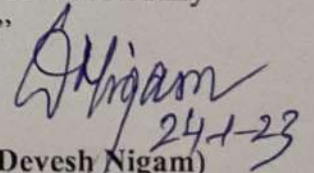 ”
DNigam
24-1-23
(Devesh Nigam)